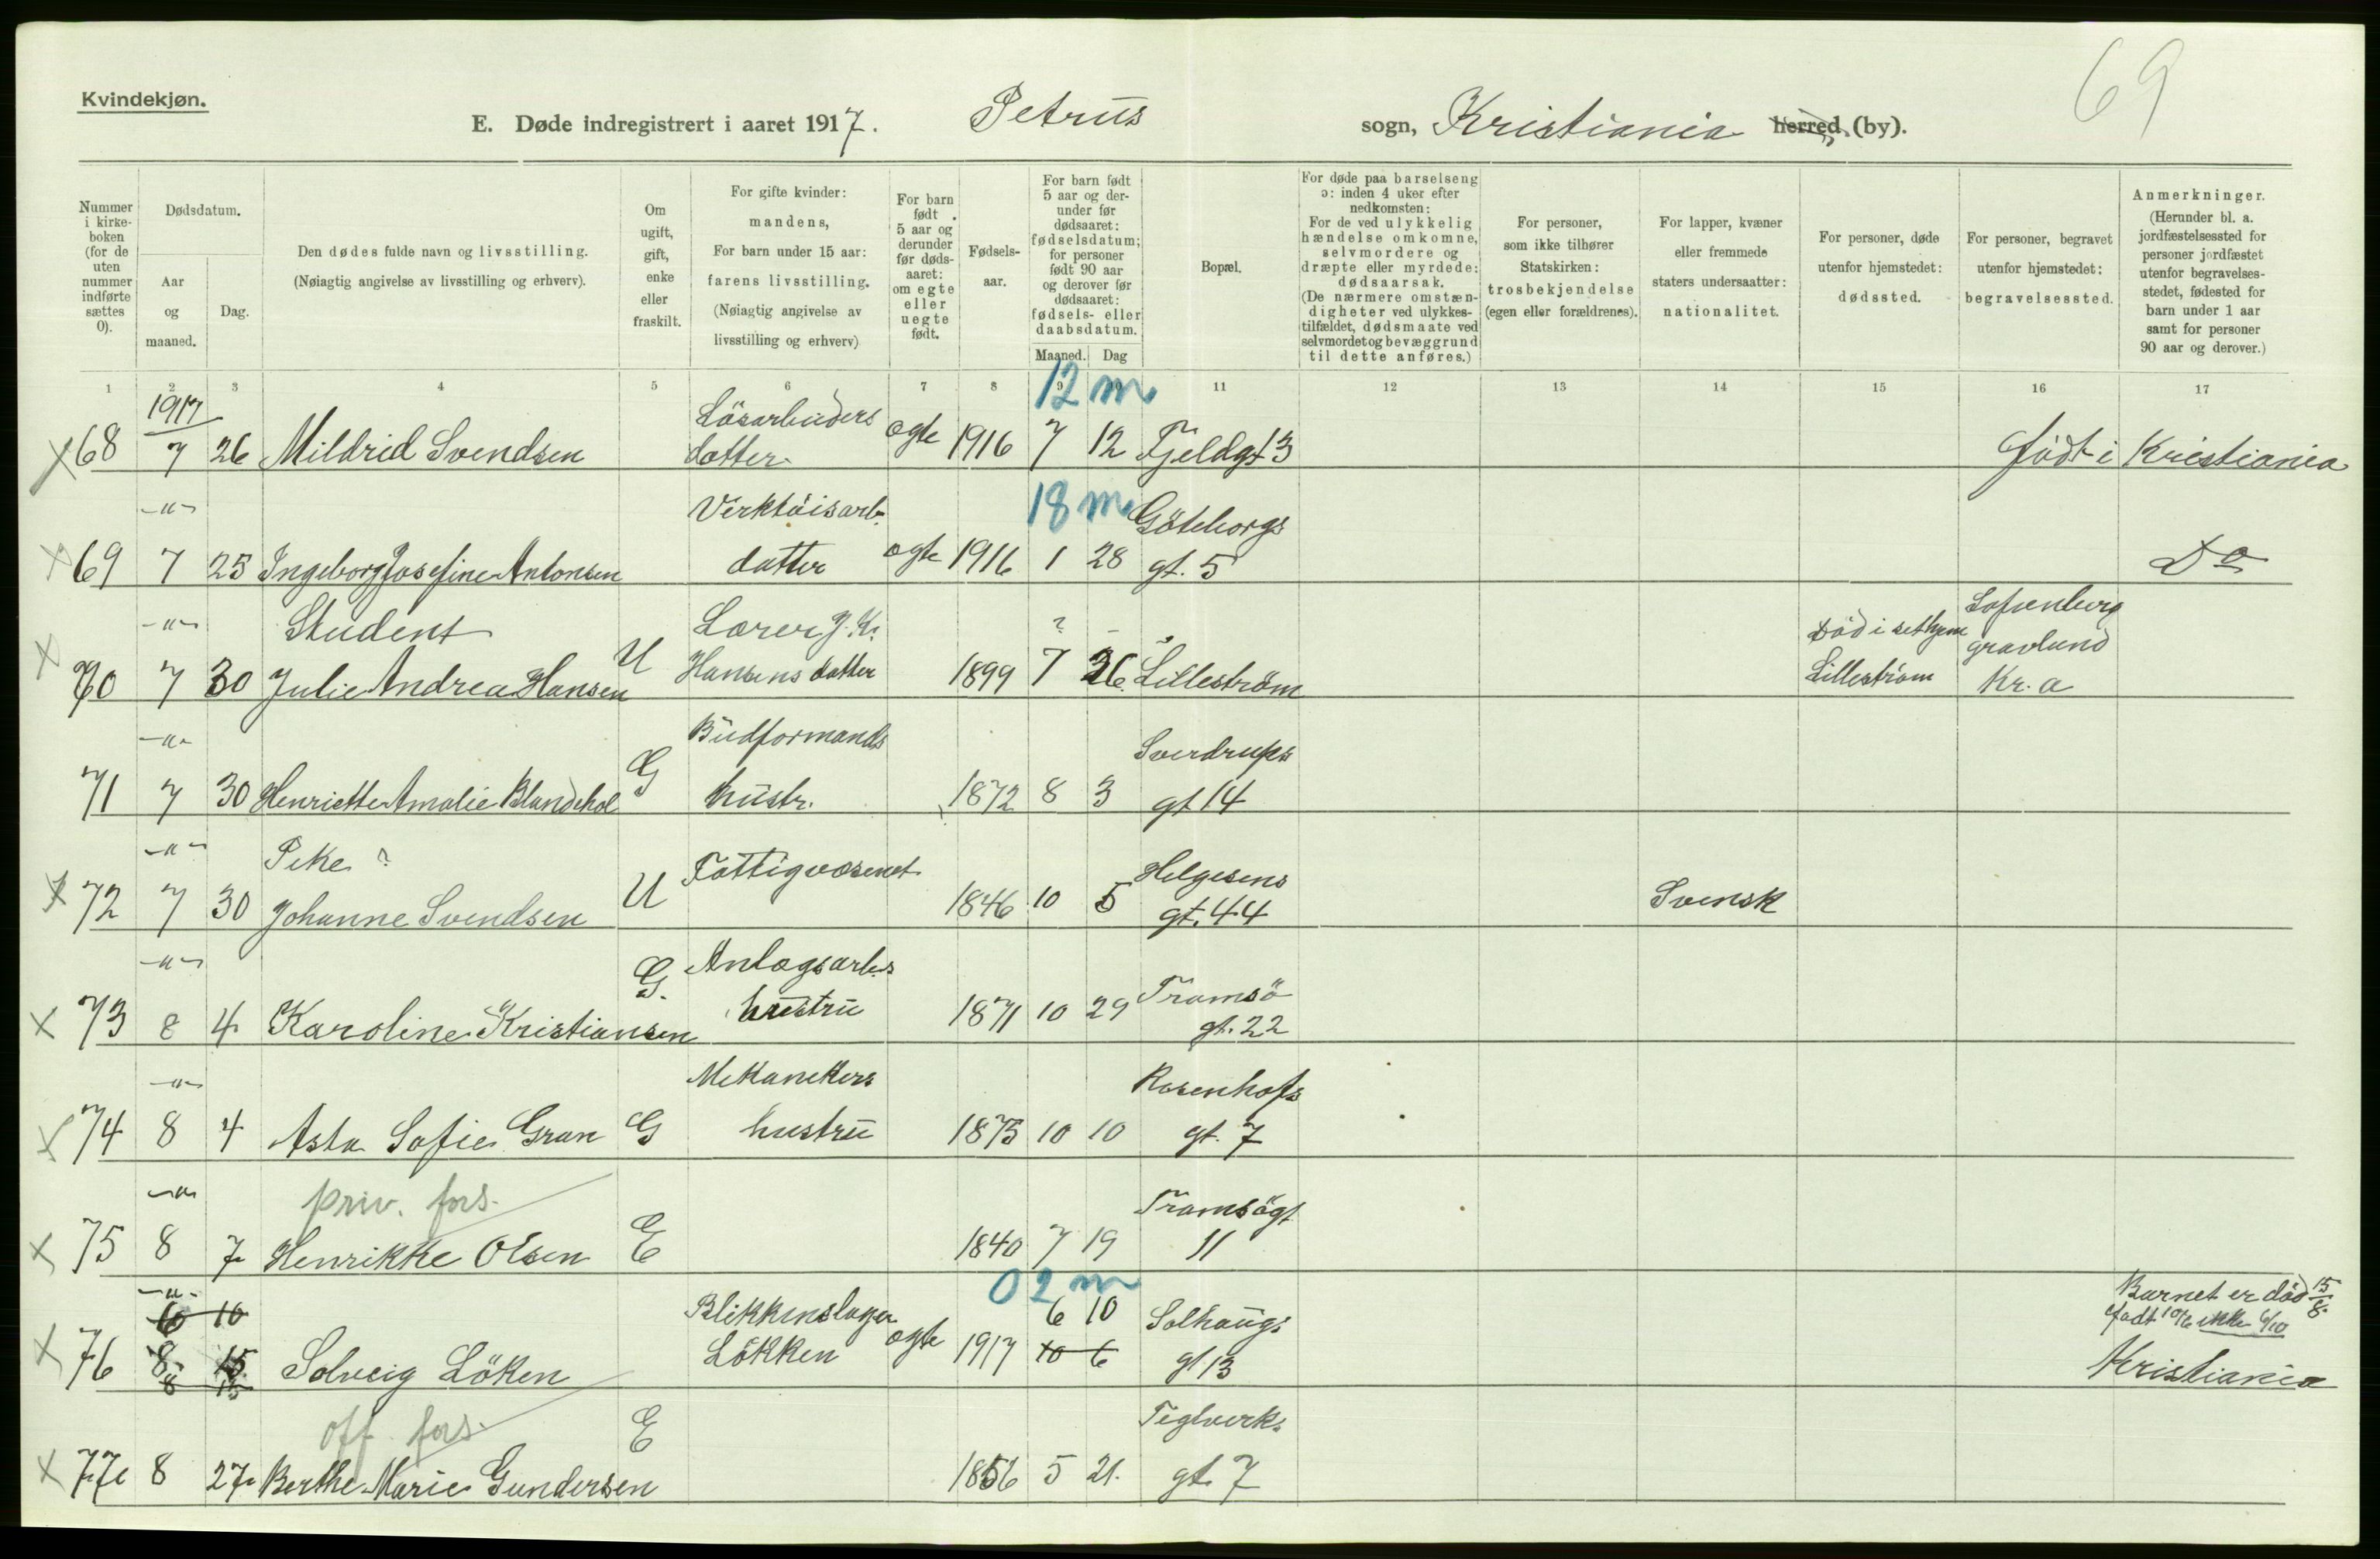 69
Kvindekjøn.
E. Døde indregistrert i aaret 1917. Petrus sogn, Kristiania herred, (by).
Nummer i kirke-boken (for de uten nummer indførte sættes 0).
Dødsdatum.
Aar og maaned.
Dag.
Den dødes fulde navn og livsstilling.
(Nøiagtig angivelse av livsstilling og erhverv).
Om ugift, gift, enke eller fraskilt.
For gifte kvinder: mandens,
For barn under 15 aar: farens livsstilling.
(Nøiagtig angivelse av livsstilling og erhverv)
For barn født 5 aar og derunder før døds-aaret: om egte eller uegte født.
Fødsels-aar.
For barn født 5 aar og der-under før dødsaaret: fødselsdatum; for personer født 90 aar og derover før dødsaaret: fødsels- eller daabsdatum.
Maaned. Dag
Bopæl.
For døde paa barselseng ɔ: inden 4 uker efter nedkomsten:
For de ved ulykkelig hændelse omkomne, selvmordere og dræpte eller myrdede: dødsaarsak.
(De nærmere omstæn-digheter ved ulykkes-tilfældet, dødsmaate ved selvmordet og bevæggrund til dette anføres.)
For personer, som ikke tilhører Statskirken: trosbekjendelse (egen eller forældrenes).
For lapper, kvæner eller fremmede staters undersaatter: nationalitet.
For personer, døde utenfor hjemstedet: dødssted.
For personer, begravet utenfor hjemstedet: begravelsessted.
Anmerkninger.
(Herunder bl. a. jordfæstelsessted for personer jordfæstet utenfor begravelses-stedet, fødested for barn under 1 aar samt for personer 90 aar og derover.)
1 2 3 4 5 6 7 8 9 10 11 12 13 14 15 16 17
1917 Lösarbeiders 12 m
x 68 7 26 Mildrid Svendsen datter ægte 1916 7 12 Fjeldgt 3 födt i Kristiania
-"- Verktöisarb. 18 m Göteborgs
x 69 7 25 Ingeborg Josefine Antonsen datter ægte 1916 1 28 gt. 5 Do
-"- Student Lærer J. K. ? Död i sit hjem Sofienberg gravlund
x 70 7 30 Julie Andrea Hansen U Hansens datter 1899 7 26 Lilleström Lilleström Kr. a
-"- Budformands Sverdrups
71 7 30 Henriette Amalie Blandehol G hustr. 1872 8 3 gt 14
-"- Pike ? Fattigvæsenet Helgesens
x 72 7 30 Johanne Svendsen U 1846 10 5 gt. 44 Svensk
-"- Anlægsarb.s Tromsö
x 73 8 4 Karoline Kristiansen G. hustru 1871 10 29 gt. 22
-"- Mekanikers Rosenhofs
x 74 8 4 Asta Sofie Gran G hustru 1875 10 10 gt. 7
-"- priv. fors. Tromsögt
x 75 8 7 Henrikke Olsen E 1840 7 19 11
-"- 02 m
6 10 Blikkenslager 6 10 Solhaugs Barnet er död 15/8
födt 10/6 ikke 6/10
x 76 8 15 Solveig Löken Lökken ægte 1917 10 6 gt 13 Kristiania
8 15
off. fors. Teglverks
x 77 8 27 Berthe Marie Gundersen E 1856 5 21. gt. 7